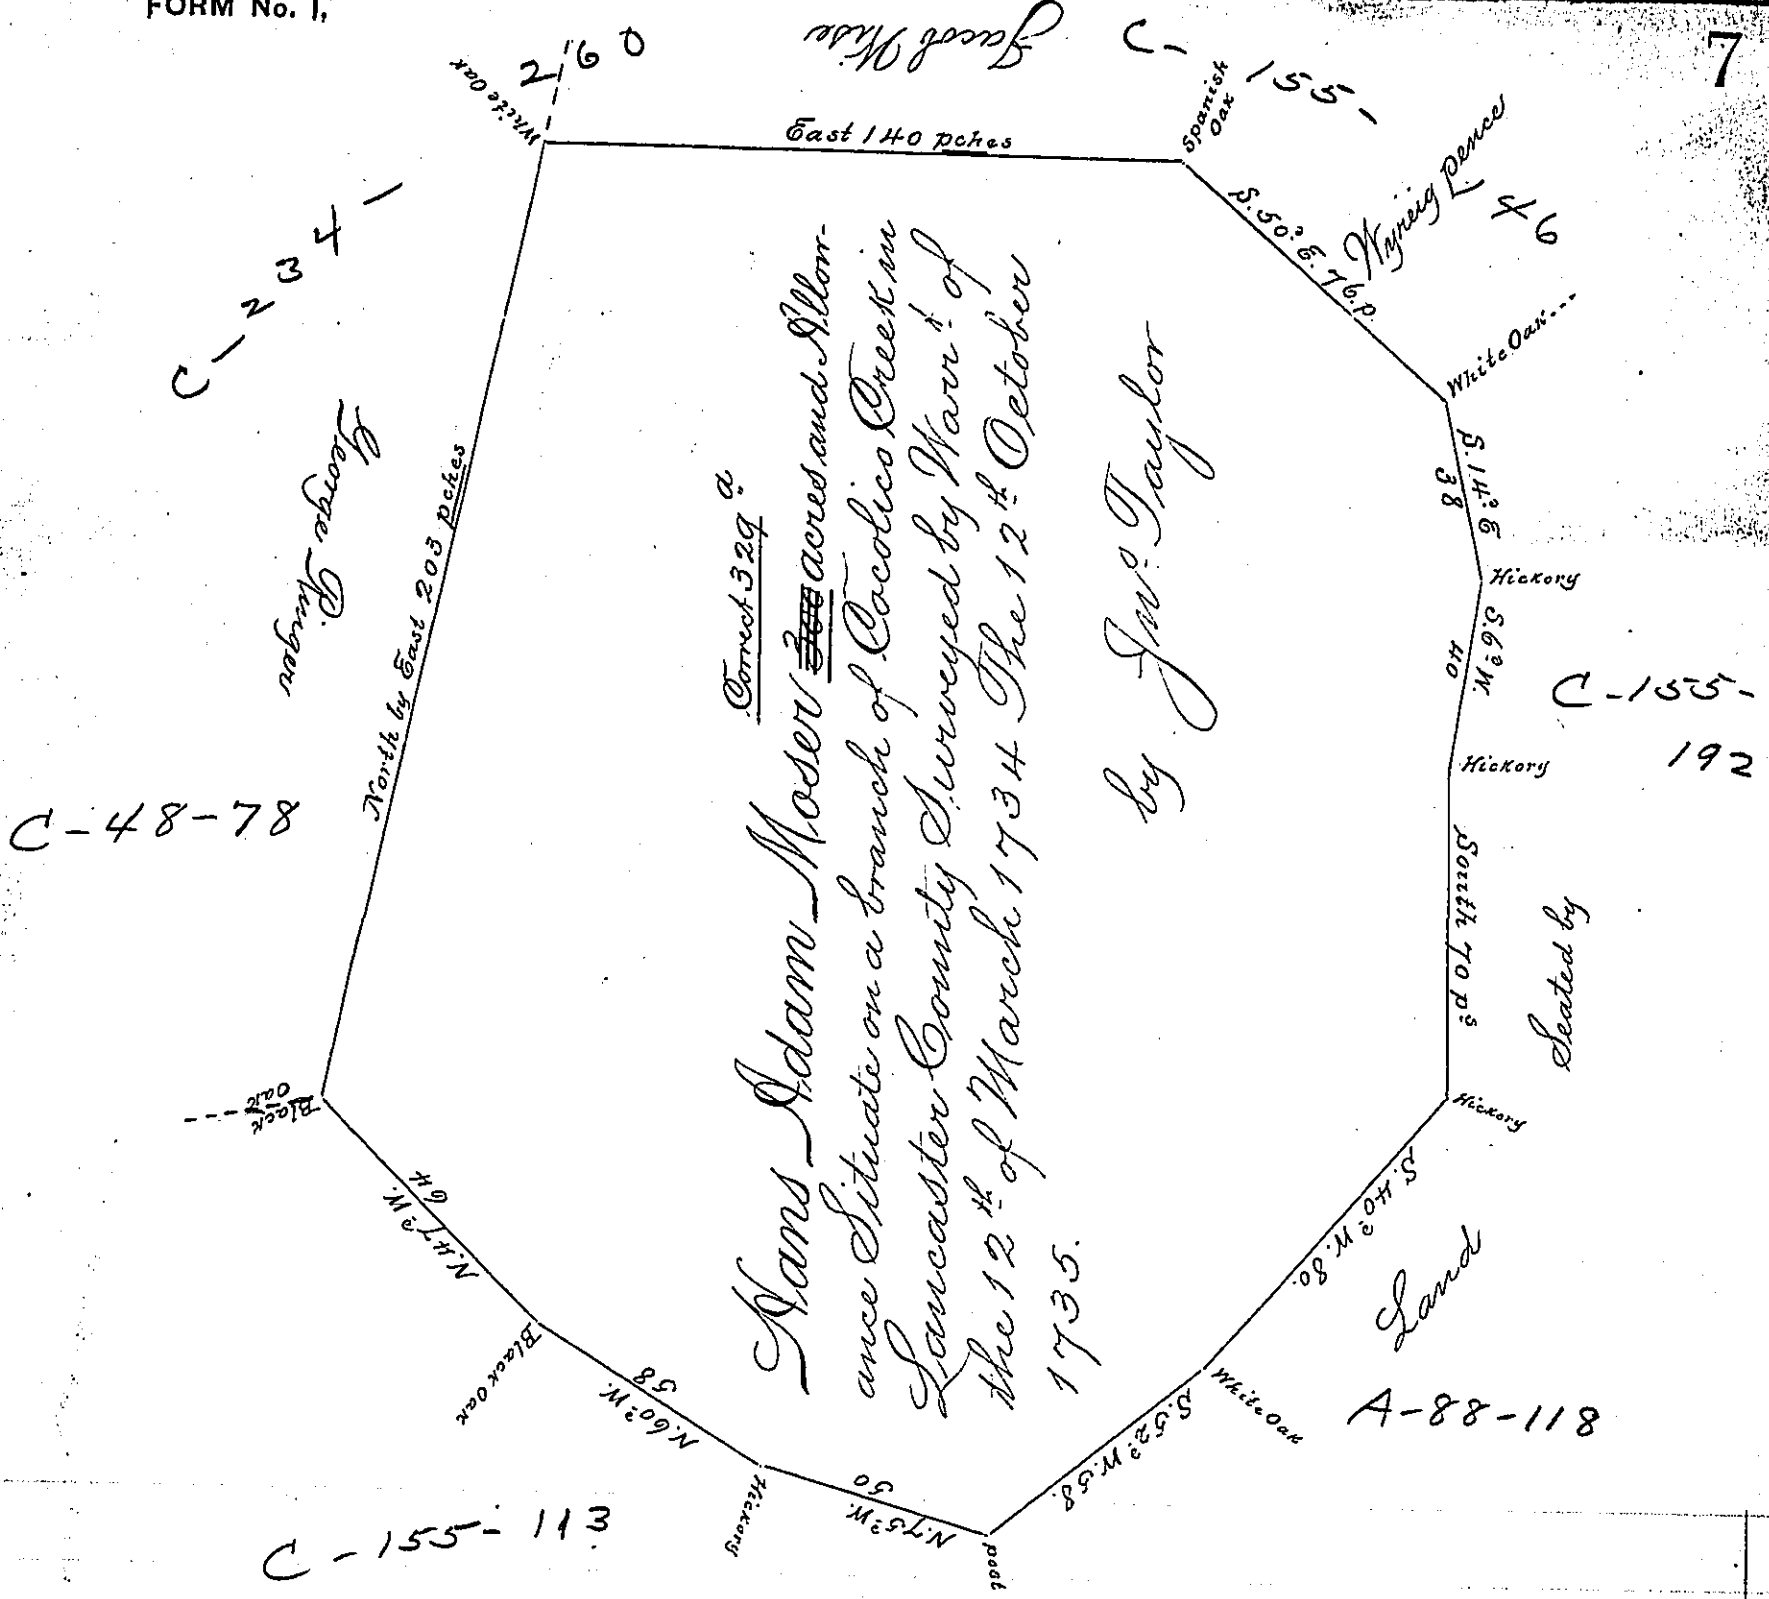 FORM No. 1,
7
260
Jacob Wise
C-155-
46
White Oak
East 140 pches
Spanish
Oak
S. 50° E. 76 p.
White Oak
S. 14° E
38
Hickory
S. 6° W.
40
Hickory
C-155-
192
South 70 ps
Seated by
Land
Hickory
S. 40° W. 80.
White Oak
A-88-118
S. 52° W. 58.
post
N. 75° W.
50
Hickory
C-155-113
N. 60° W.
58
Black Oak
N. 47° W.
64
Black
Oak
North by East 203 pches
C-48-78
George
C-234-
Correct 329 a
Hans Adam Moser 300 acres and Allow-
ance Situate on a branch of Cocolico Creek in
Lancaster County Surveyed by Warrt of
the 12th of March 1734 The 12th October
1735.
by Jno. Taylor